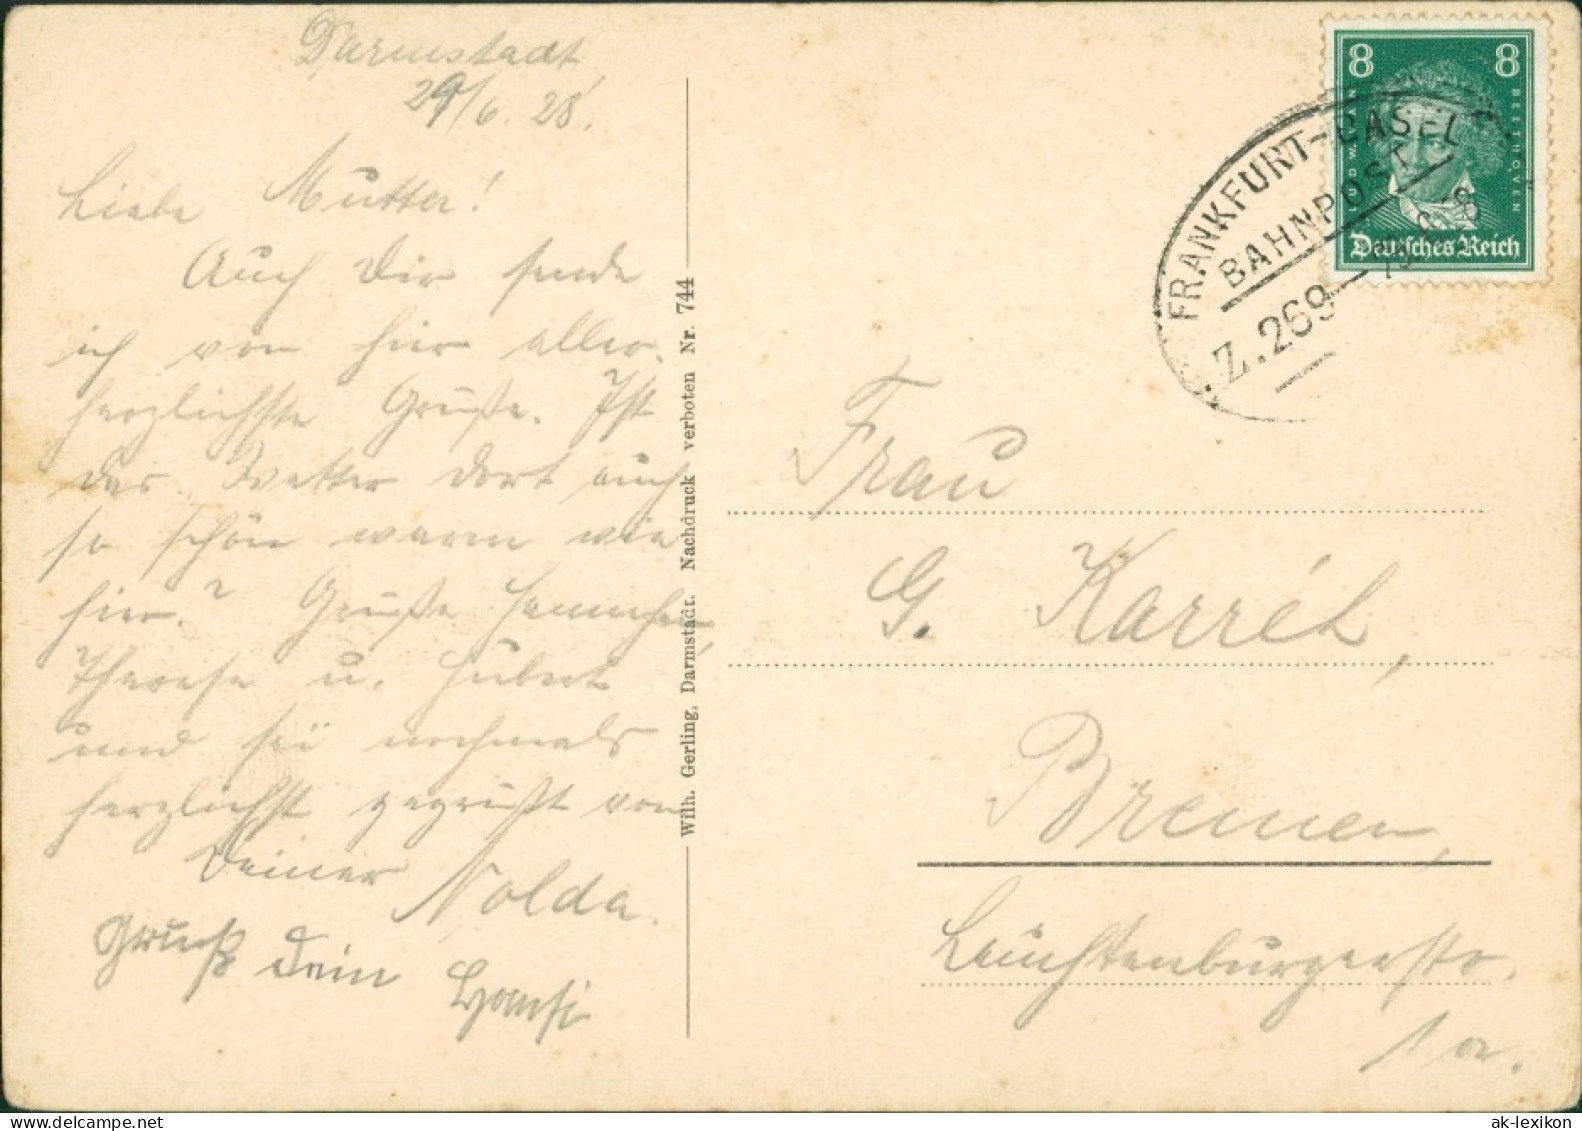 Darmstadt
29/6. 28.
Liebe Mutter!
Auch Dir sende
ich von hier aller-
herzlichste Grüße. Ist
das Wetter dort auch
so schön warm wie
hier? Grüße Hannchen,
Therese u. Hubert
und sei nochmals
herzlichst gegrüßt von
Deiner Nolda.
Gruß Dein Hansi
Wilh. Gerling, Darmstadt. Nachdruck verboten Nr. 744
8 8
LUDWIG VAN BEETHOVEN
Deutsches Reich
FRANKFURT-BASEL
BAHNPOST
Z.269
Frau
G. Karréh,
Bremen,
Leuchtenburgerstr.
1 a.
ak-lexikon.com